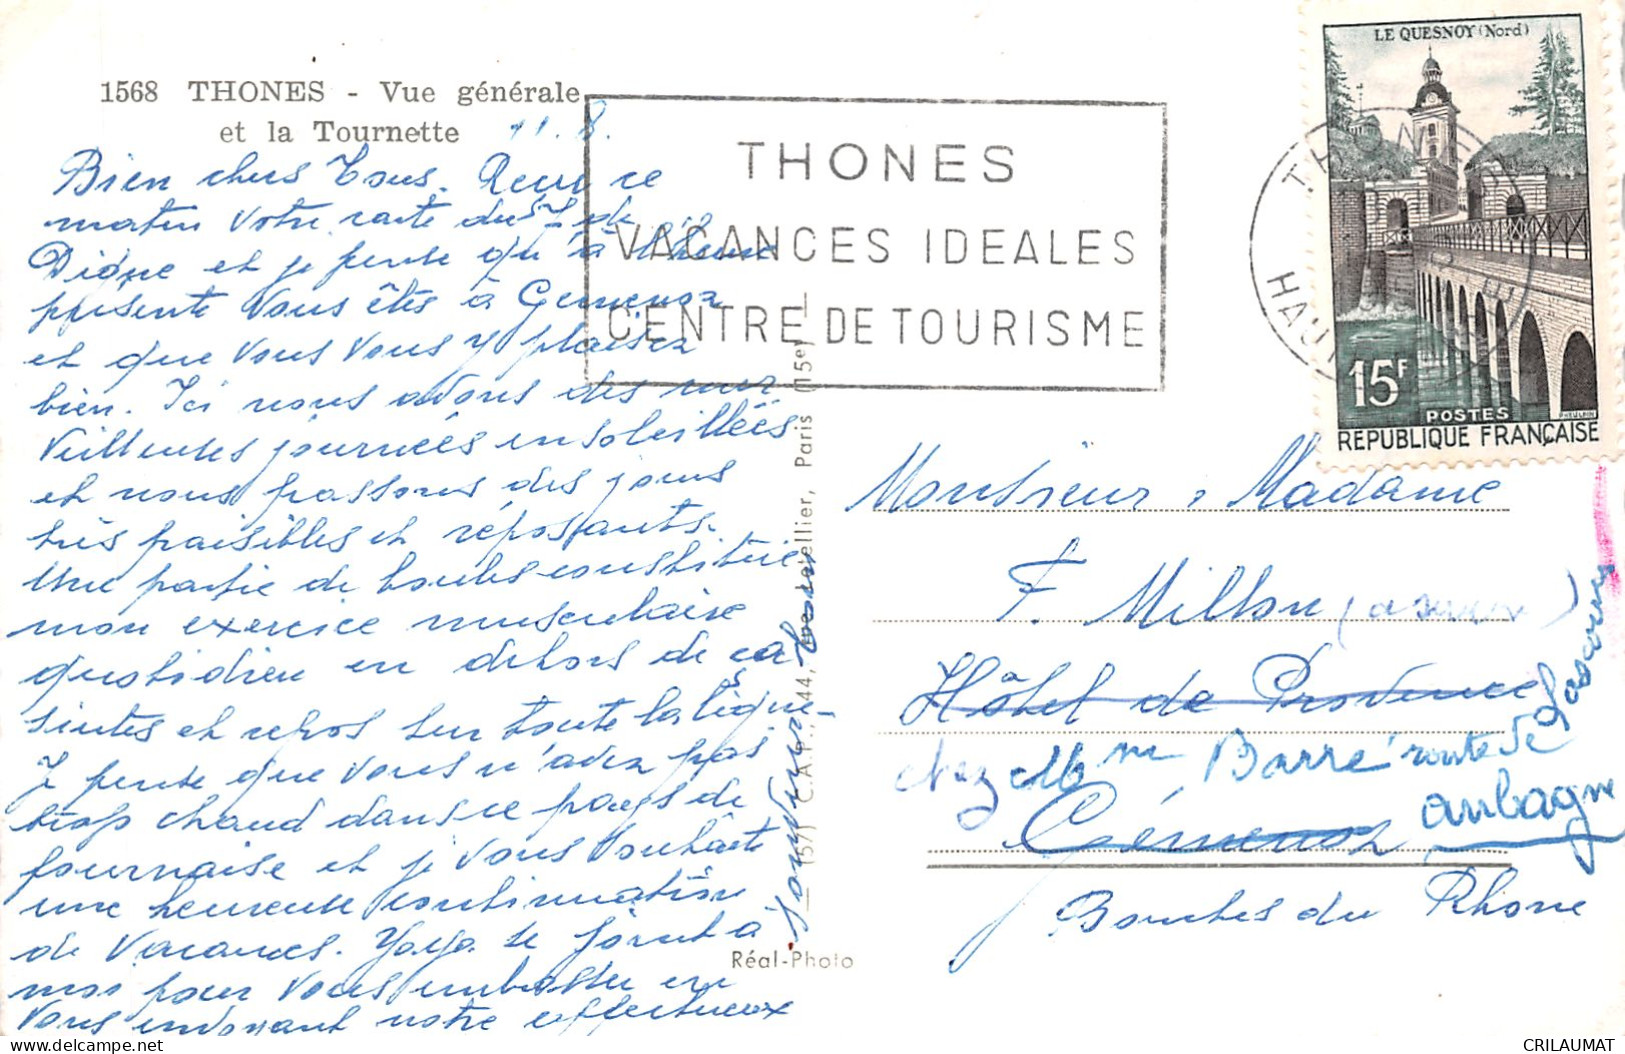 1568 THONES - Vue générale
et la Tournette
11.8.
Bien chers Tous. Reçu ce
matin votre carte du 7 de
Digne et je pense qu'à l'heure
présente vous êtes à Gemenos
et que vous vous y plaisez
bien. Ici nous avons des mer
veilleuses journées ensoleillées
et nous passons des jours
très paisibles et réposants.
Une partie de boules constitue
mon exercice musculaire
quotidien en dehors de ça
siestes et repos sur toute la ligne.
Je pense que vous n'avez pas
trop chaud dans ce pays de
fournaise et je vous souhaite
une heureuse continuation
de vacances. Yaya se joint à
moi pour vous embrasser en
vous envoyant notre affectueux
souvenir
THONES
VACANCES IDEALES
CENTRE DE TOURISME
THONES
HAUTE
LE QUESNOY (Nord)
15F
POSTES
REPUBLIQUE FRANÇAISE
Monsieur, Madame
F. Millon
Hôtel de Provence
chez Mme Barré route de
Gémenos aubagne
Bouches du Rhone
1571 C.A.P., 44, Paris (15e)
Réal-Photo
CRILAUMAT